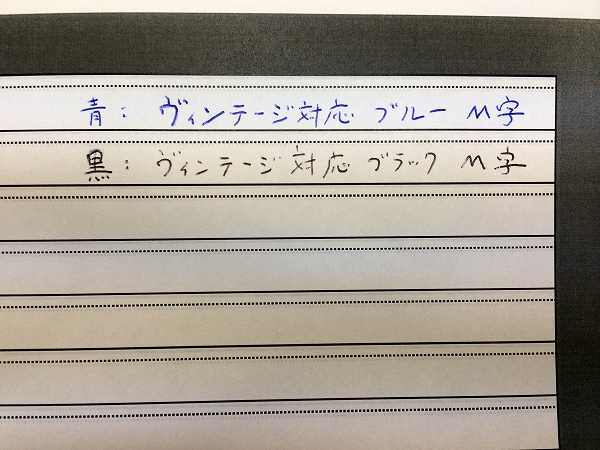 青: ヴィンテージ対応 ブルー M字
黒: ヴィンテージ対応 ブラック M字